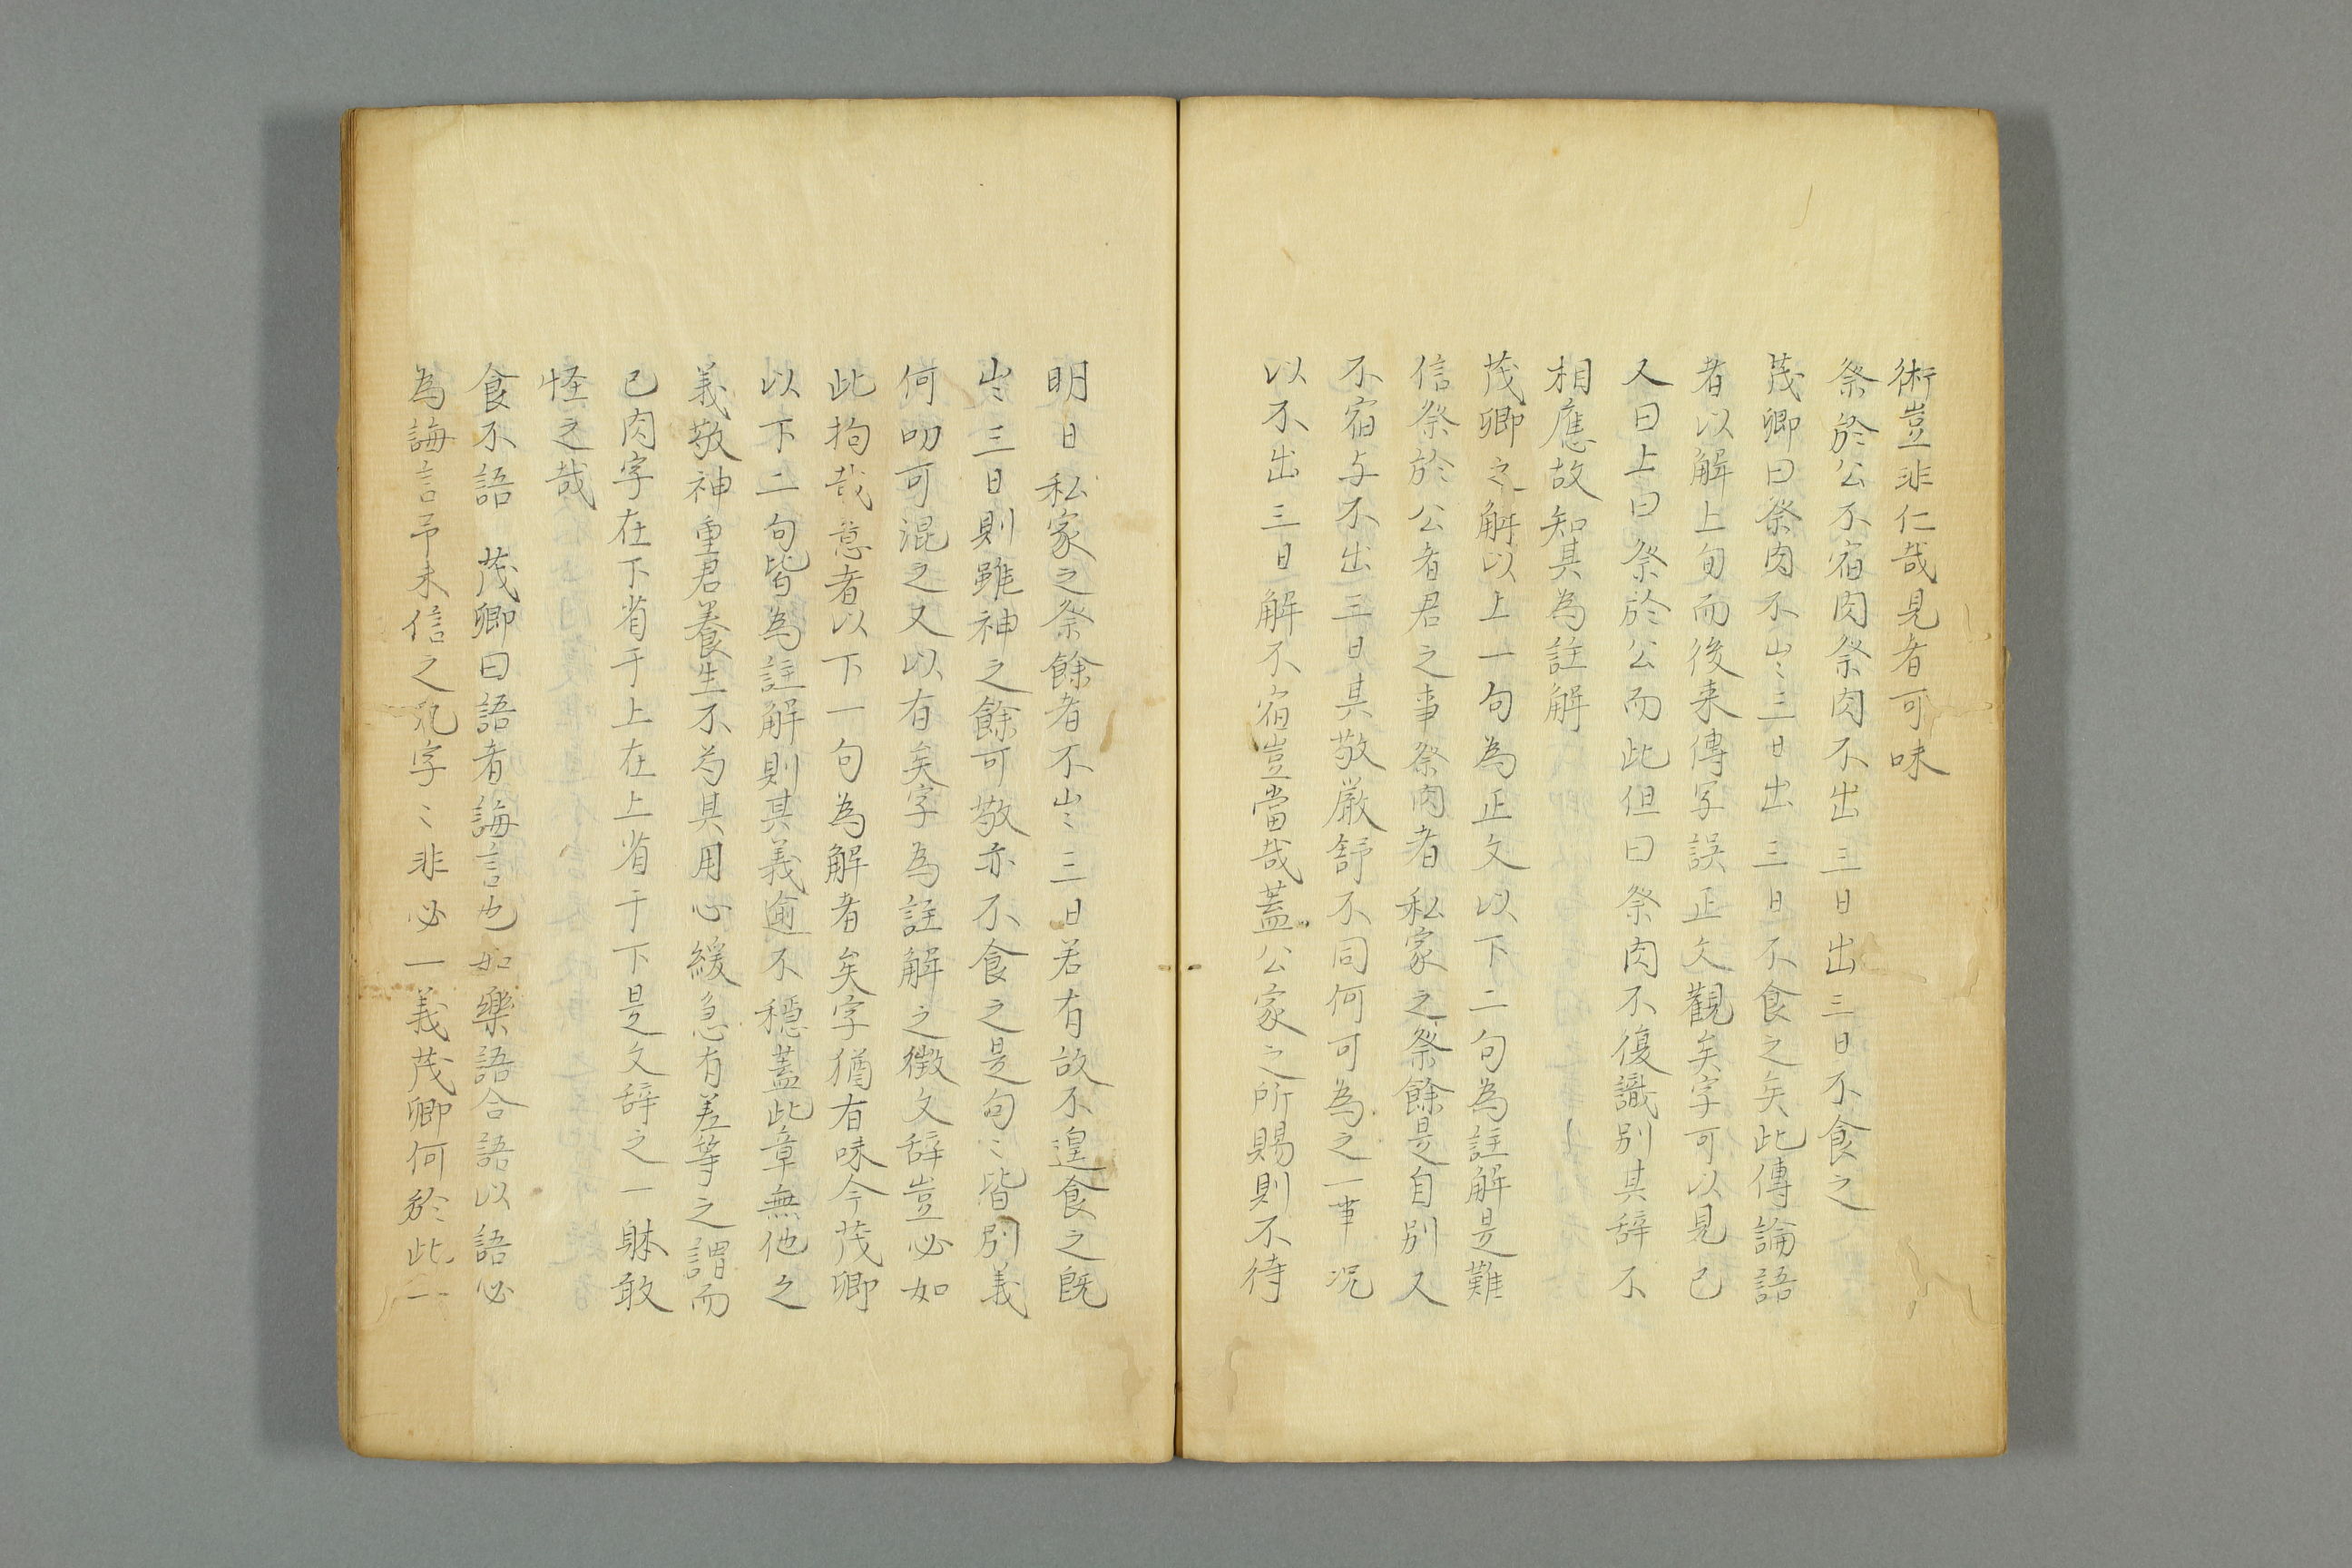 術豈非仁哉見者可味
祭於公不宿肉祭肉不出三日出三日不食之
茂卿曰祭肉不出三日出三日不食之矣此傳論語
者以解上旬而後来傳写誤正文觀矣字可以見已
又曰上曰祭於公而此但曰祭肉不復識別其辞不
相應故知其為註解
茂卿之解以上一句為正文以下二句為註解是難
信祭於公者君之事祭肉者私家之祭餘是自別又
不宿与不出三日其敬厳舒不同何可為之一事况
以不出三日解不宿豈當哉蓋公家之所賜則不待
明日私家之祭餘者不出三日若有故不遑食之既
出三日則雖神之餘可敬亦不食之是句〻皆別義
何叨可混之又以有矣字為註解之徴文辞豈必如
此拘哉意者以下一句為解者矣字猶有味今茂卿
以下二句皆為註解則其義逾不穏蓋此章無他之
義敬神重君養生不為其用心緩急有差等之謂而
已肉字在下省于上在上省于下是文辞之一躰敢
怪之哉
食不語　茂卿曰語者誨言也如樂語合語以語必
為誨言予未信之凡字〻非必一義茂卿何於此二